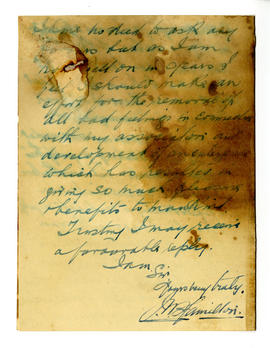 no need to ask any
but as I am
well on in years I
should make an
effort for the removal of
all bad feeling in connection
with my association and
development of
which has resulted in
giving so much pleasure
& benefits to mankind.
Trusting I may receive
a favourable reply.
I am
Sir
Yours very truly.
J. M. Hamilton.